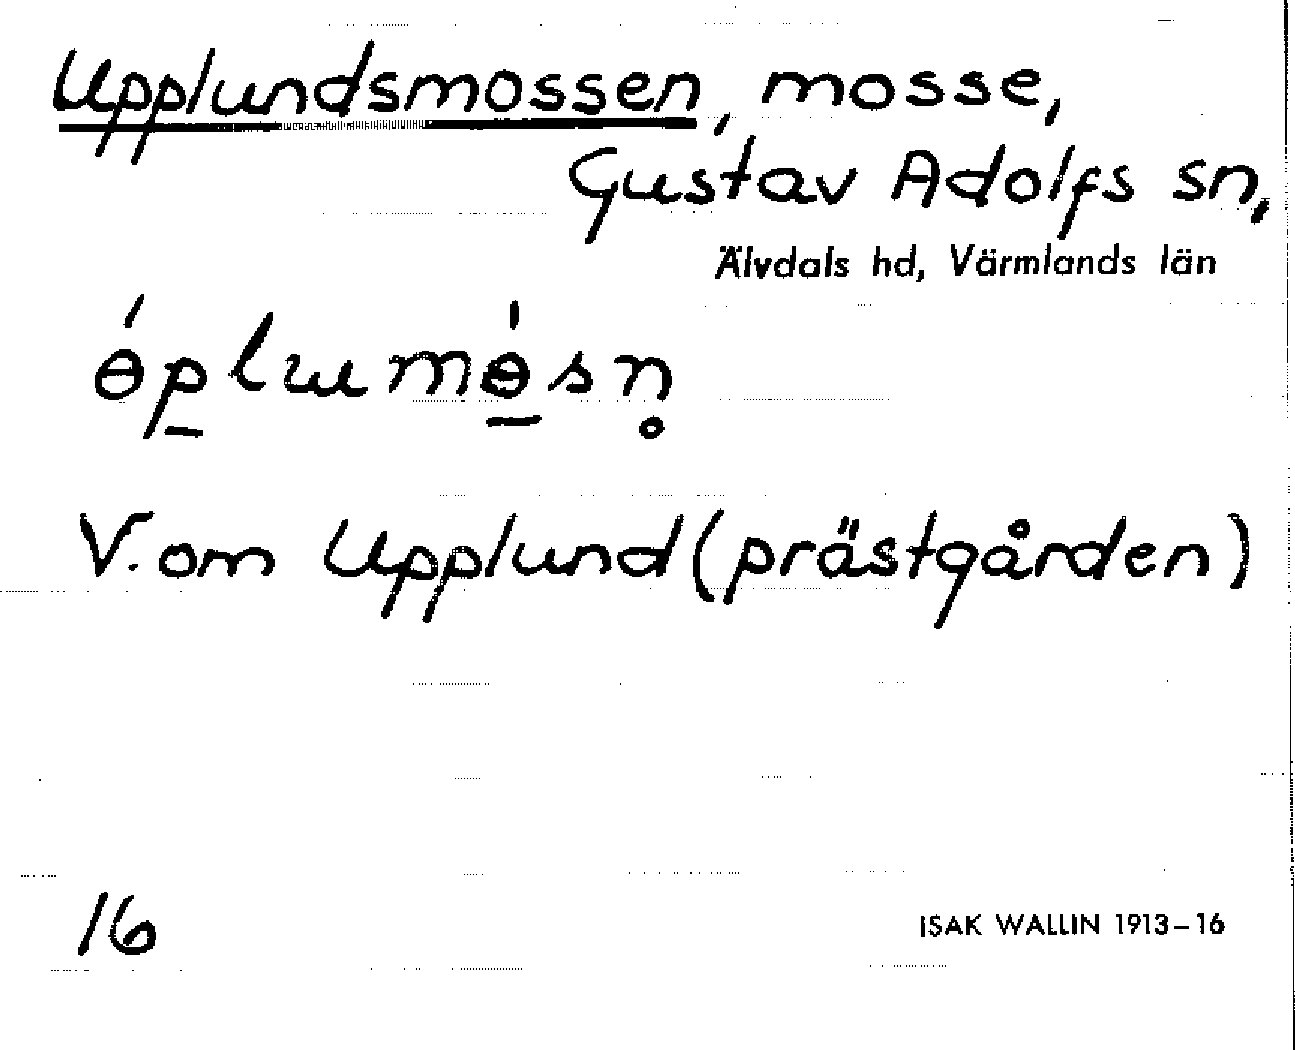 Upplundsmossen, mosse,
Gustav Adolfs sn,
Älvdals hd, Värmlands län
ɵ́p̲lɯmɵ̲́sn̥
V. om Upplund (prästgården)
16
ISAK WALLIN 1913–16